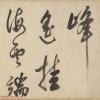 峰
遥挂
海雲端